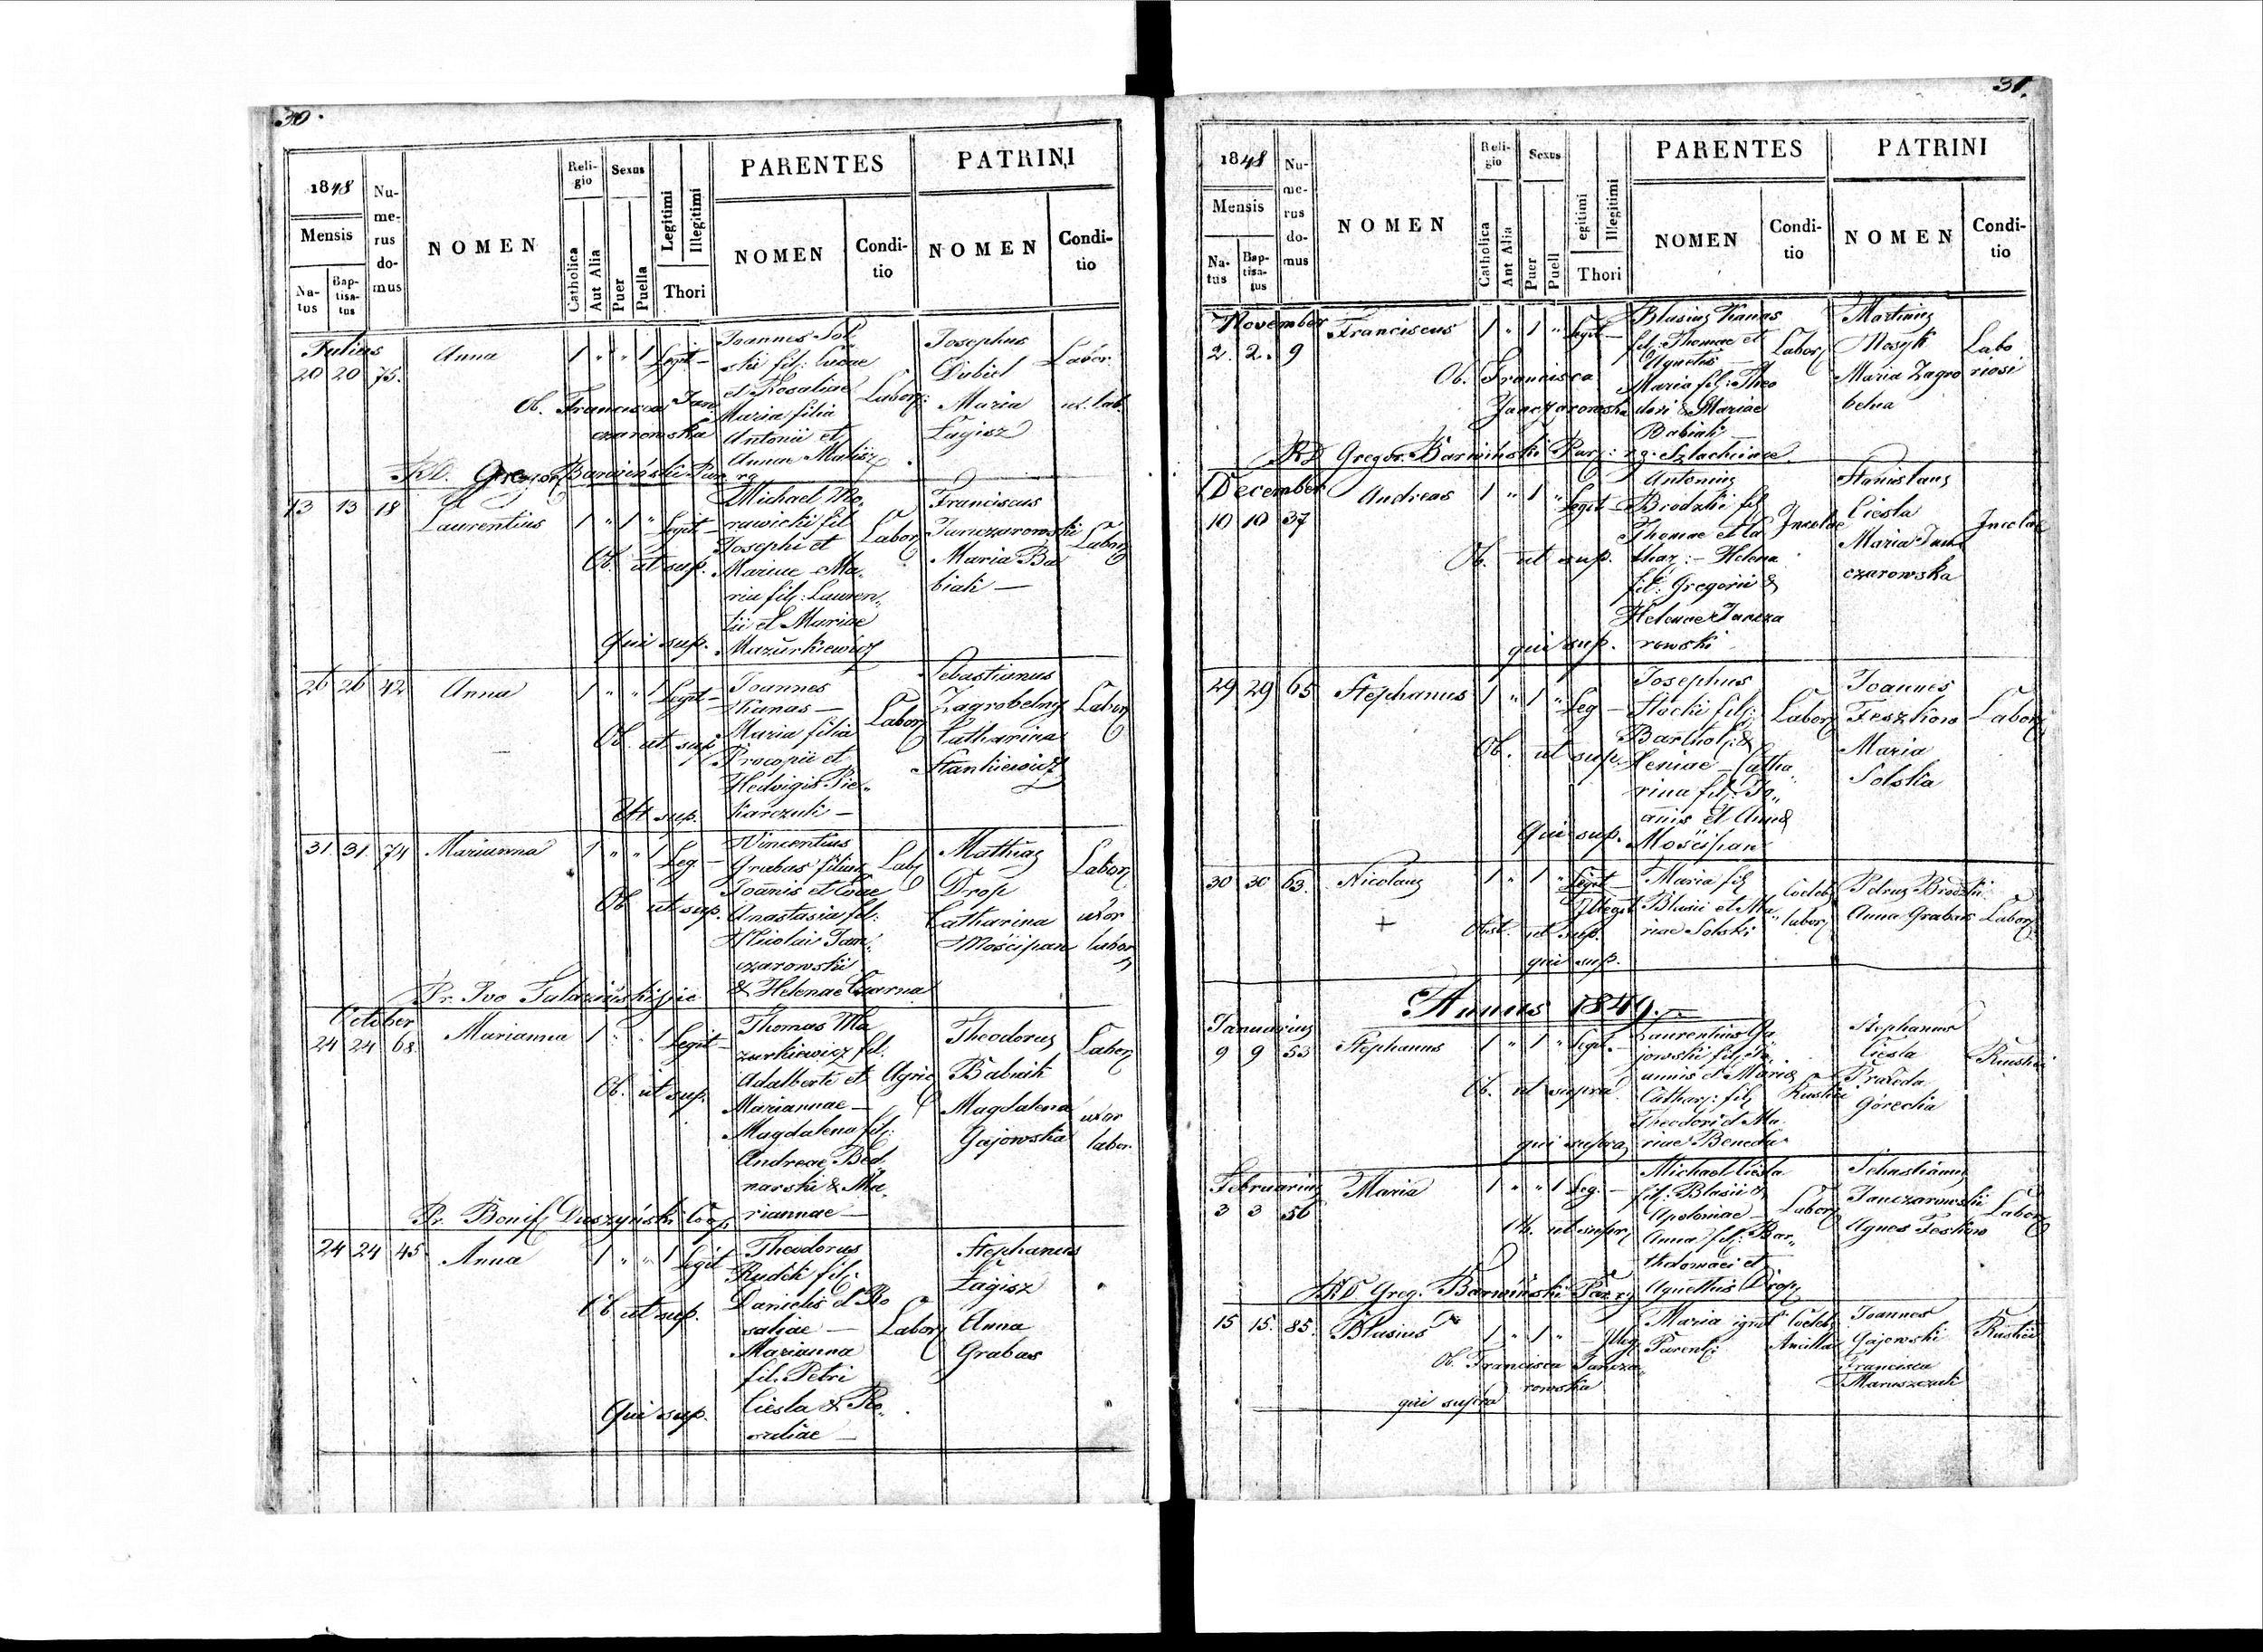 30.
1848
Mensis
Na-
tus
Bap-
tisa-
tus
Nu-
me-
rus
do-
mus
NOMEN
Reli-
gio
Catholica
Aut Alia
Sexus
Puer
Puella
Legitimi
Illegitimi
Thori
PARENTES
NOMEN
Condi-
tio
PATRINI
NOMEN
Condi-
tio
Julius
20 20 75. Anna 1 " " 1 Legit —
Ob. Francisca Jan
czarowska
Joannes Sol
ski fil: Lucae
et Rosaliae
Maria filia
Antonii et
Annae
Labor:
Josephus
Dubiel
Maria
Łagisz
Labor.
ux. lab.
RD. Gregor Barwiński Par. rg
13 13 18 Laurentius 1 " 1 " Legit —
Ob. ut sup.
Qui sup.
Michael Mo
rawicki fil
Josephi et
Mariae — Ma
ria fil: Lauren„
tii et Mariae
Mazurkiewicz
Labor
Franciscus
Janczarowski
Maria Ba
biak —
Labor
26 26 42 Anna 1 " " 1 Legit —
Ob. ut sup
Ut sup.
Joannes
Kanas —
Maria filia
Procopii et
Hedvigis Pie„
karczuk —
Labor
Sebastianus
Zagrobelny
Catharina
Stankiewicz
Labor
31. 31. 74 Marianna 1 " " 1 Leg —
Ob ut sup.
Wincentius
Grabas filius
Joanis et Evae
Anastasia fil:
Nicolai Jan„
czarowski
& Helenae Czarna
Lab
Mathias
Drop
Catharina
Mościpan
Labor
uxor
labor
Pr. Ivo
October
24 24 68 Marianna 1 " " 1 Legit —
Ob. ut sup.
Thomas Ma
zurkiewicz fil.
Adalberti et
Mariannae —
Magdalena fil:
Andreae Bed
narski & Ma
riannae —
Agric
Theodorus
Babiak
Magdalena
Gajowska
Labor
uxor
labor.
Pr. Bonif Duszyński Coop
24 24 45 Anna 1 " " 1 Legit
Ob ut sup.
Qui sup.
Theodorus
Rudek fil:
Danielis et Ro
saliae —
Marianna
fil. Petri
Ciesla & Ro„
saliae —
Labor
Stephanus
Łagisz
Anna
Grabas
31.
1848
Mensis
Na-
tus
Bap-
tisa-
tus
Nu-
me-
rus
do-
mus
NOMEN
Reli-
gio
Catholica
Aut Alia
Sexus
Puer
Puell
egitimi
Illegitimi
Thori
PARENTES
NOMEN
Condi-
tio
PATRINI
NOMEN
Condi-
tio
November
2. 2. 9 Franciscus 1 " 1 " Legit —
Ob. Francisca
Janczarowska
Blasius Kanas
fil: Thomae et
Agnetis —
Maria fil: Theo
dori & Mariae
Babiak
Labor
Martinus
Mosyk
Maria Zagro
belna
Labo
riosi
RD Gregor. Barwiński Par: rg. Szlachcince.
December
10 10 37 Andreas 1 " 1 " Legit —
Ob. ut sup.
qui sup.
Antonius
Brodzki fil
Thomae et Ca
thar: — Helena
fil: Gregorii &
Helenae Jancza
rowski
Incolae
Stanislaus
Ciesla
Maria Jan
czarowska
Incolae
29 29 65 Stephanus 1 " 1 " Leg —
Ob. ut sup.
Qui sup.
Josephus
Stocki fil:
Barthol: &
Xeniae — Catha
rina fil. Jo„
anis et Annae
Mościpan
Labor
Joannes
Feszkow
Maria
Solska
Labor
30 30 63. Nicolaus 1 " 1 " Legit
Illegit
+
Obst. ut sup.
qui sup.
Maria fil
Blasii et Ma„
riae Solski
Coeleb
labor
Petrus Brodzki
Anna Grabas
Labor
Annus 1849. —
Januarius
9 9 53 Stephanus 1 " 1 " Legit. —
Ob. ut supra
qui supra
Laurentius Ga„
jowski fil. Jo„
annis et Mariae
Cathar: fil
Theodori et Ma
riae Beneda
Rustici
Stephanus
Ciesla
Praxeda
Górecka
Rustici
Februarius
3 3 56 Maria 1 " " 1 Leg. —
Ob. ut supr
Michael Ciesla
fil: Blasii &
Apoloniae —
Anna fil: Bar„
tholomaei et
Agnethis Drop
Labor
Sebastianus
Janczarowski
Agnes Feskow
Labor
RD Greg. Barwiński Par rg
15 15. 85. Blasius 1 " 1 " — Illeg
Ob. Francisca Jancza„
rowska
qui supra
Maria ignot
Parent:
Coeleb
Ancilla
Joannes
Gajowski
Francisca
Maruszczak
Rustici